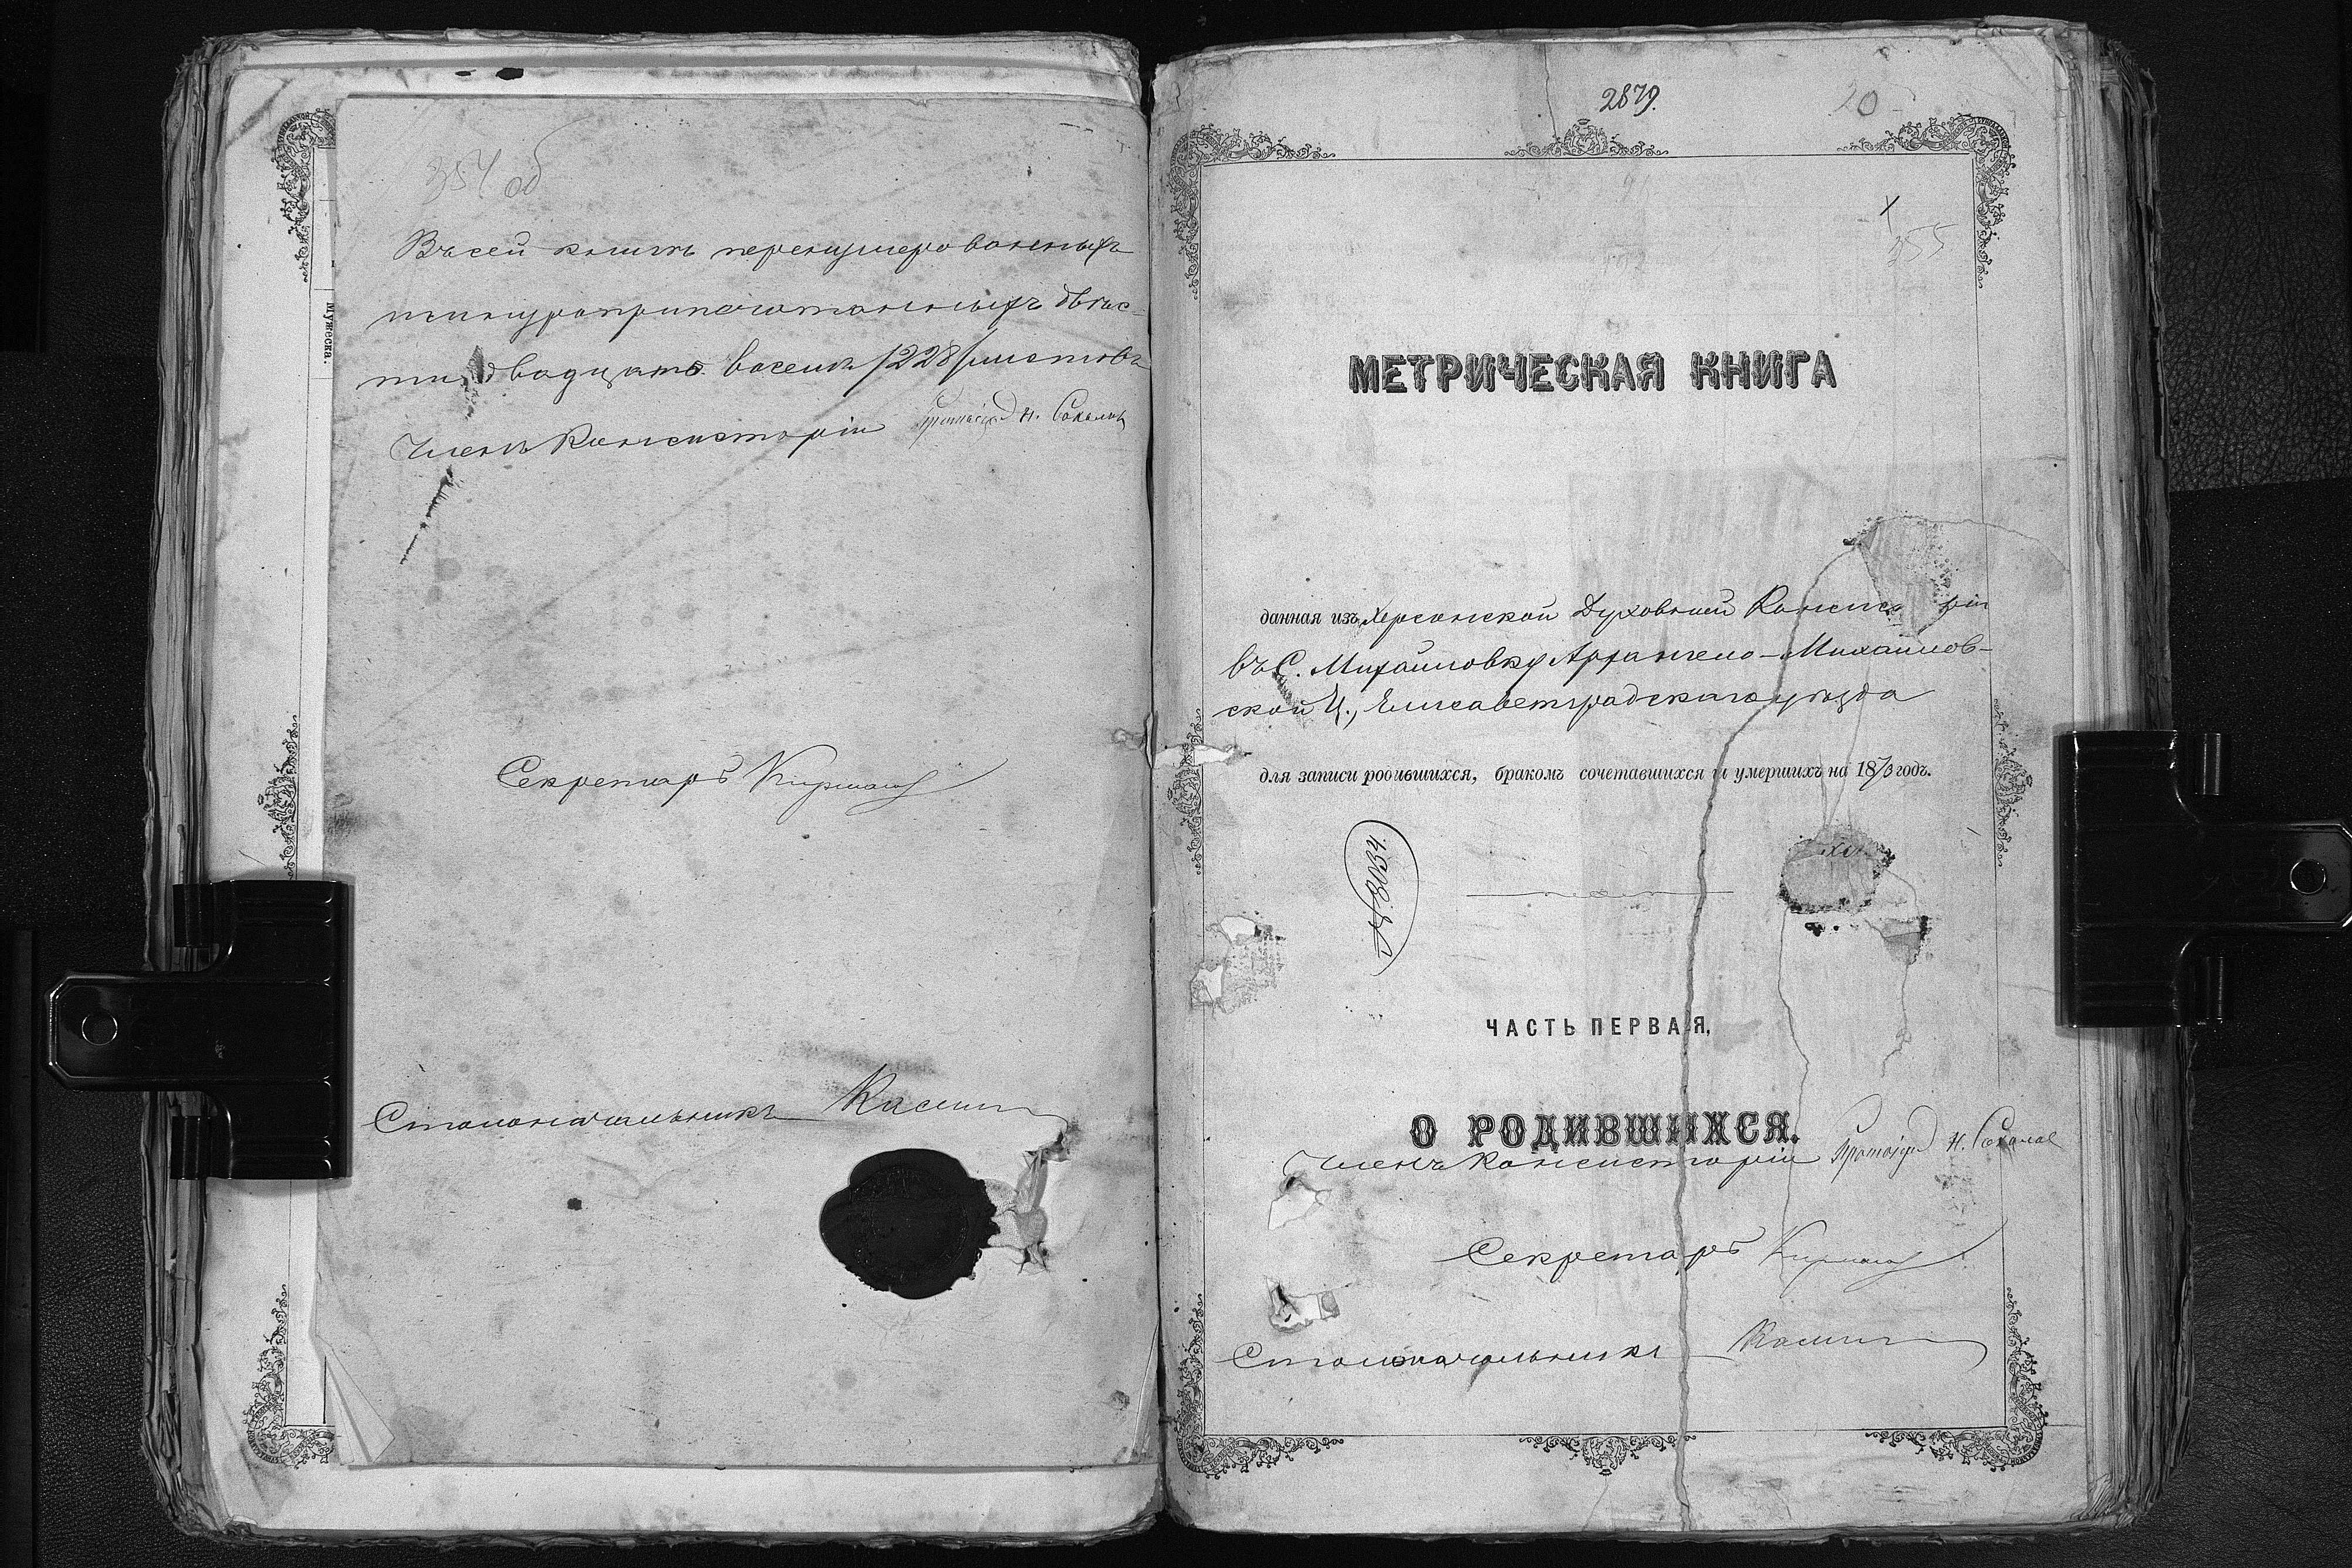 354 об
Въ сей книгѣ перенумерованныхъ
и шнуроприпечатанныхъ двѣс-
ти двадцать восемь /228/ листовъ
Членъ Консисторіи Протоіерей Н. Соколовъ
Секретарь
Столоначальникъ
Мужеска.
2879.
20
355
МЕТРИЧЕСКАЯ КНИГА
данная изъ Херсонской Духовной Консис ріи
въ С. Михайловку Архангело-Михайлов-
ской Ц., Елисаветградскаго уѣзда
для записи родившихся, бракомъ сочетавшихся и умершихъ на 1873 годъ.
№ 3034.
ЧАСТЬ ПЕРВАЯ,
О РОДИВШИХСЯ.
Членъ Консисторіи Протоіерей Н. Соколов
Секретарь
Столоначальникъ